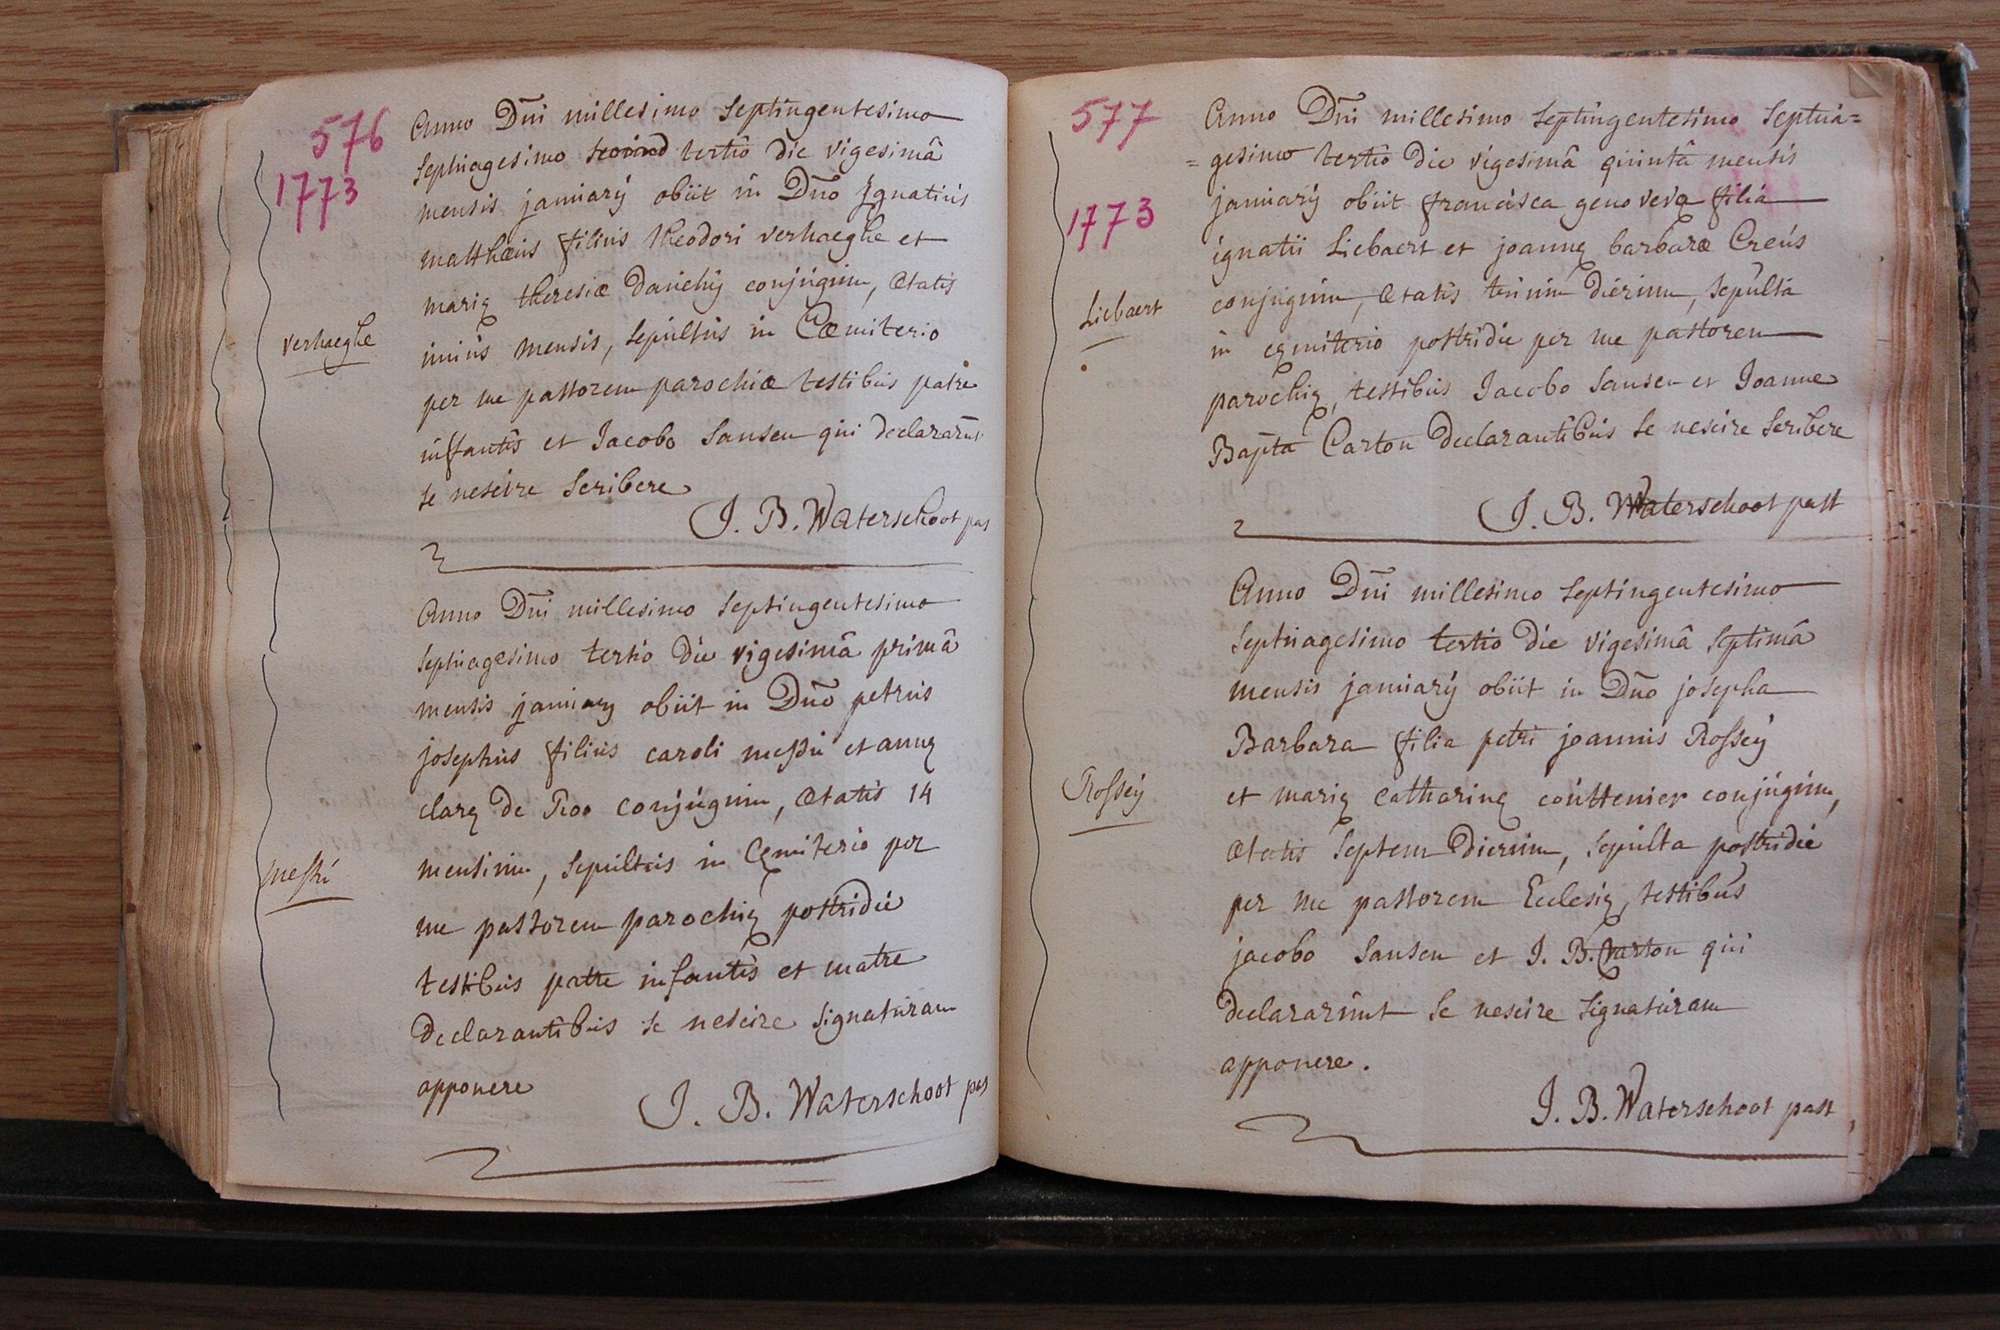 576
1773
Anno Dñi millesimo septingentesimo
septuagesimo tertio die vigesimâ
mensis januarij obiit in Dño Ignatius
matthæus filius theodori verhaeghe et
marię theresiæ Dauchij conjugum, ætatis
verhaeghe
unius mensis, sepultus in Cæmiterio
per me pastorem parochiæ testibus patre
infantis et Jacobo Sansen qui declararunt
se nescire scribere
J. B. Waterschoot pas
Anno Dñi millesimo septingentesimo
septuagesimo tertio die vigesimâ primâ
mensis januarij obiit in Dño petrus
josephus filius caroli messu et annę
clarę de Roo conjugum, ætatis 14
messu
mensium, sepultus in Cęmiterio per
me pastorem parochię postridie
testibus patre infantis et matre
declarantibus se nescire signaturam
apponere
J. B. Waterschoot pas
577
1773
Anno Dñi millesimo septingentesimo septua=
=gesimo tertio die vigesimâ quintâ mensis
januarij obiit francisca genoveva filia
ignatii Liebaert et joannę barbaræ Creus
Liebaert
conjugum, ætatis trium dierum, sepulta
in cęmiterio postridie per me pastorem
parochię, testibus Jacobo Sansen et Joanne
Bapta Carton declarantibus se nescire scribere
J. B. Waterschoot past
Anno Dñi millesimo septingentesimo
septuagesimo tertio die vigesimâ septimâ
mensis januarij obiit in Dño josepha
Barbara filia petri joannis Rossey
Rossey
et marię catharinę couttenier conjugum,
ætatis septem dierum, sepulta postridie
per me pastorem Ecclesię, testibus
jacobo Sansen et J. B. Carton qui
declararunt se nescire signaturam
apponere.
J. B. Waterschoot past